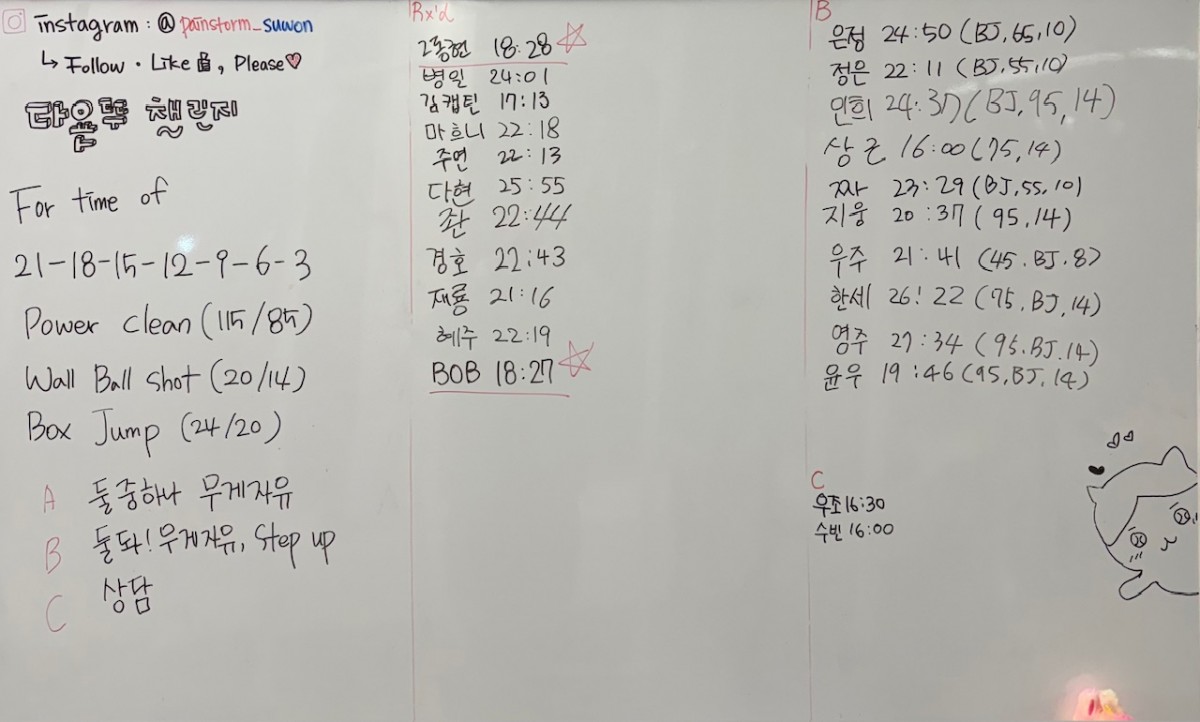 instagram : @ painstorm_suwon
↳ Follow · Like, Please♡
타율뿌 챌린지
For time of
21-18-15-12-9-6-3
Power clean (115/85)
Wall Ball shot (20/14)
Box Jump (24/20)
A 둘중하나 무게자유
B 둘다! 무게자유, Step up
C 상담
Rx'd
18:28
병일 24:01
김캡틴 17:13
마흐니 22:18
주연 22:13
다현 25:55
좐 22:44
경호 22:43
재룡 21:16
혜주 22:19
BOB 18:27
B
은정 24:50 (BJ, 65, 10)
정은 22:11 (BJ, 55, 10)
인희 24:37 (BJ, 95, 14)
상근 16:00 (75, 14)
짜 23:29 (BJ, 55, 10)
지웅 20:37 (95, 14)
우주 21:41 (45. BJ. 8)
한세 26:22 (75, BJ, 14)
영주 27:34 (95. BJ. 14)
윤우 19:46 (95, BJ, 14)
C
우조 16:30
수빈 16:00